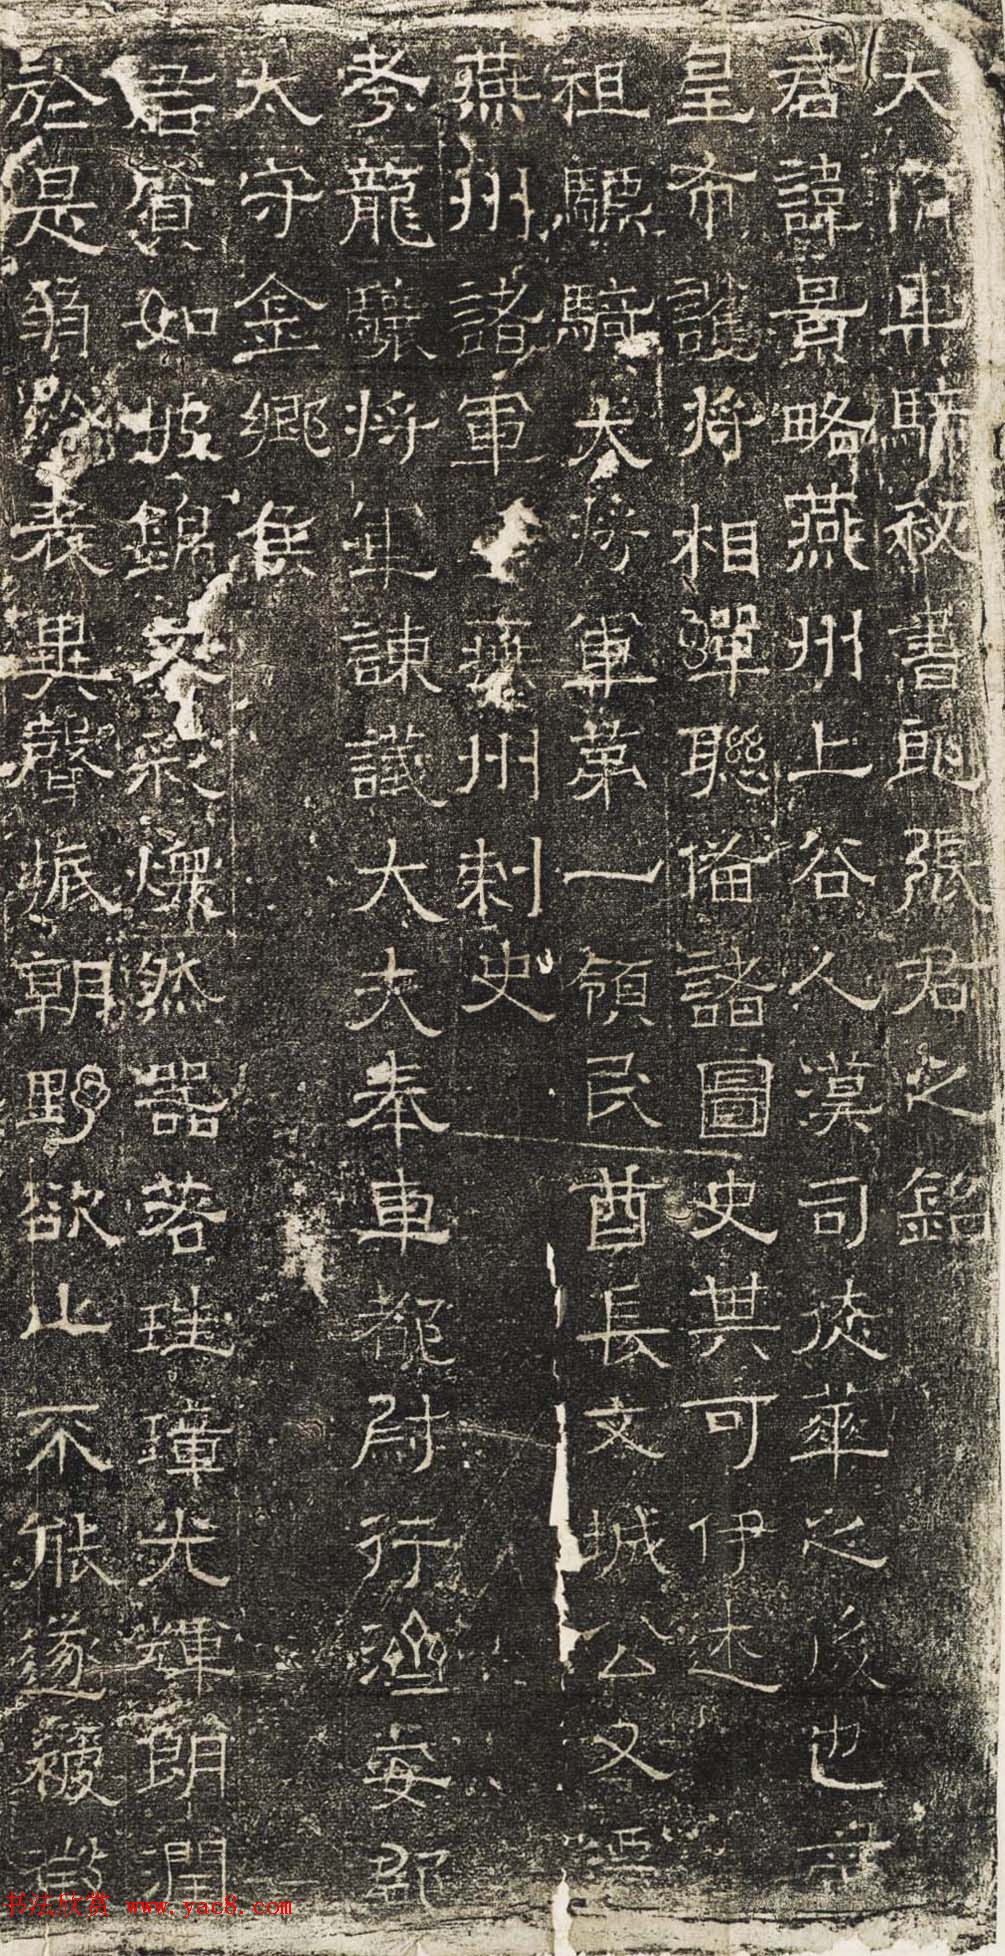 大隋車騎秘書郎張君之銘
君諱景略燕州上谷人漢司空華之後也章
皇布護將相蟬聯備諸圖史其可伊述
祖驃騎大將軍第一領民酋長文城公又
燕州諸軍事燕州刺史
考龍驤將軍諫議大夫奉車都尉行濟安郡
太守金鄉侯
君質如披錦文彩煥然器若珪璋光輝朗潤
於是弱齡表異聲振朝野欲止不能遂被
书法欣赏 www.yac8.com